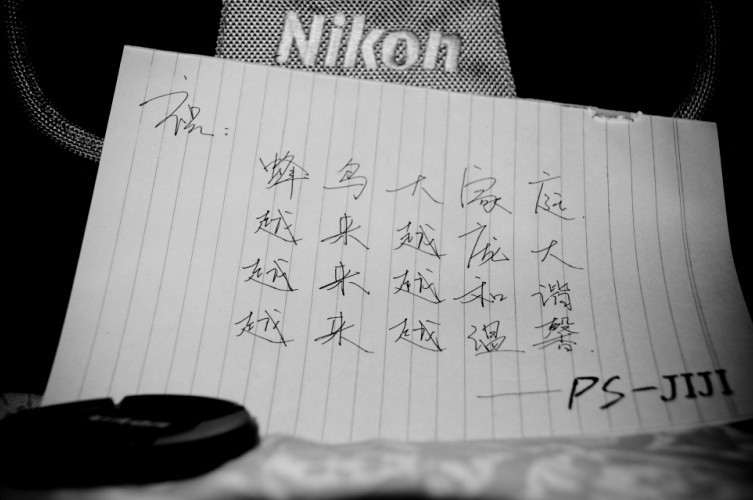 Nikon
祝:
蜂鸟大家庭
越来越庞大
越来越和谐
越来越温馨
——PS-JIJI